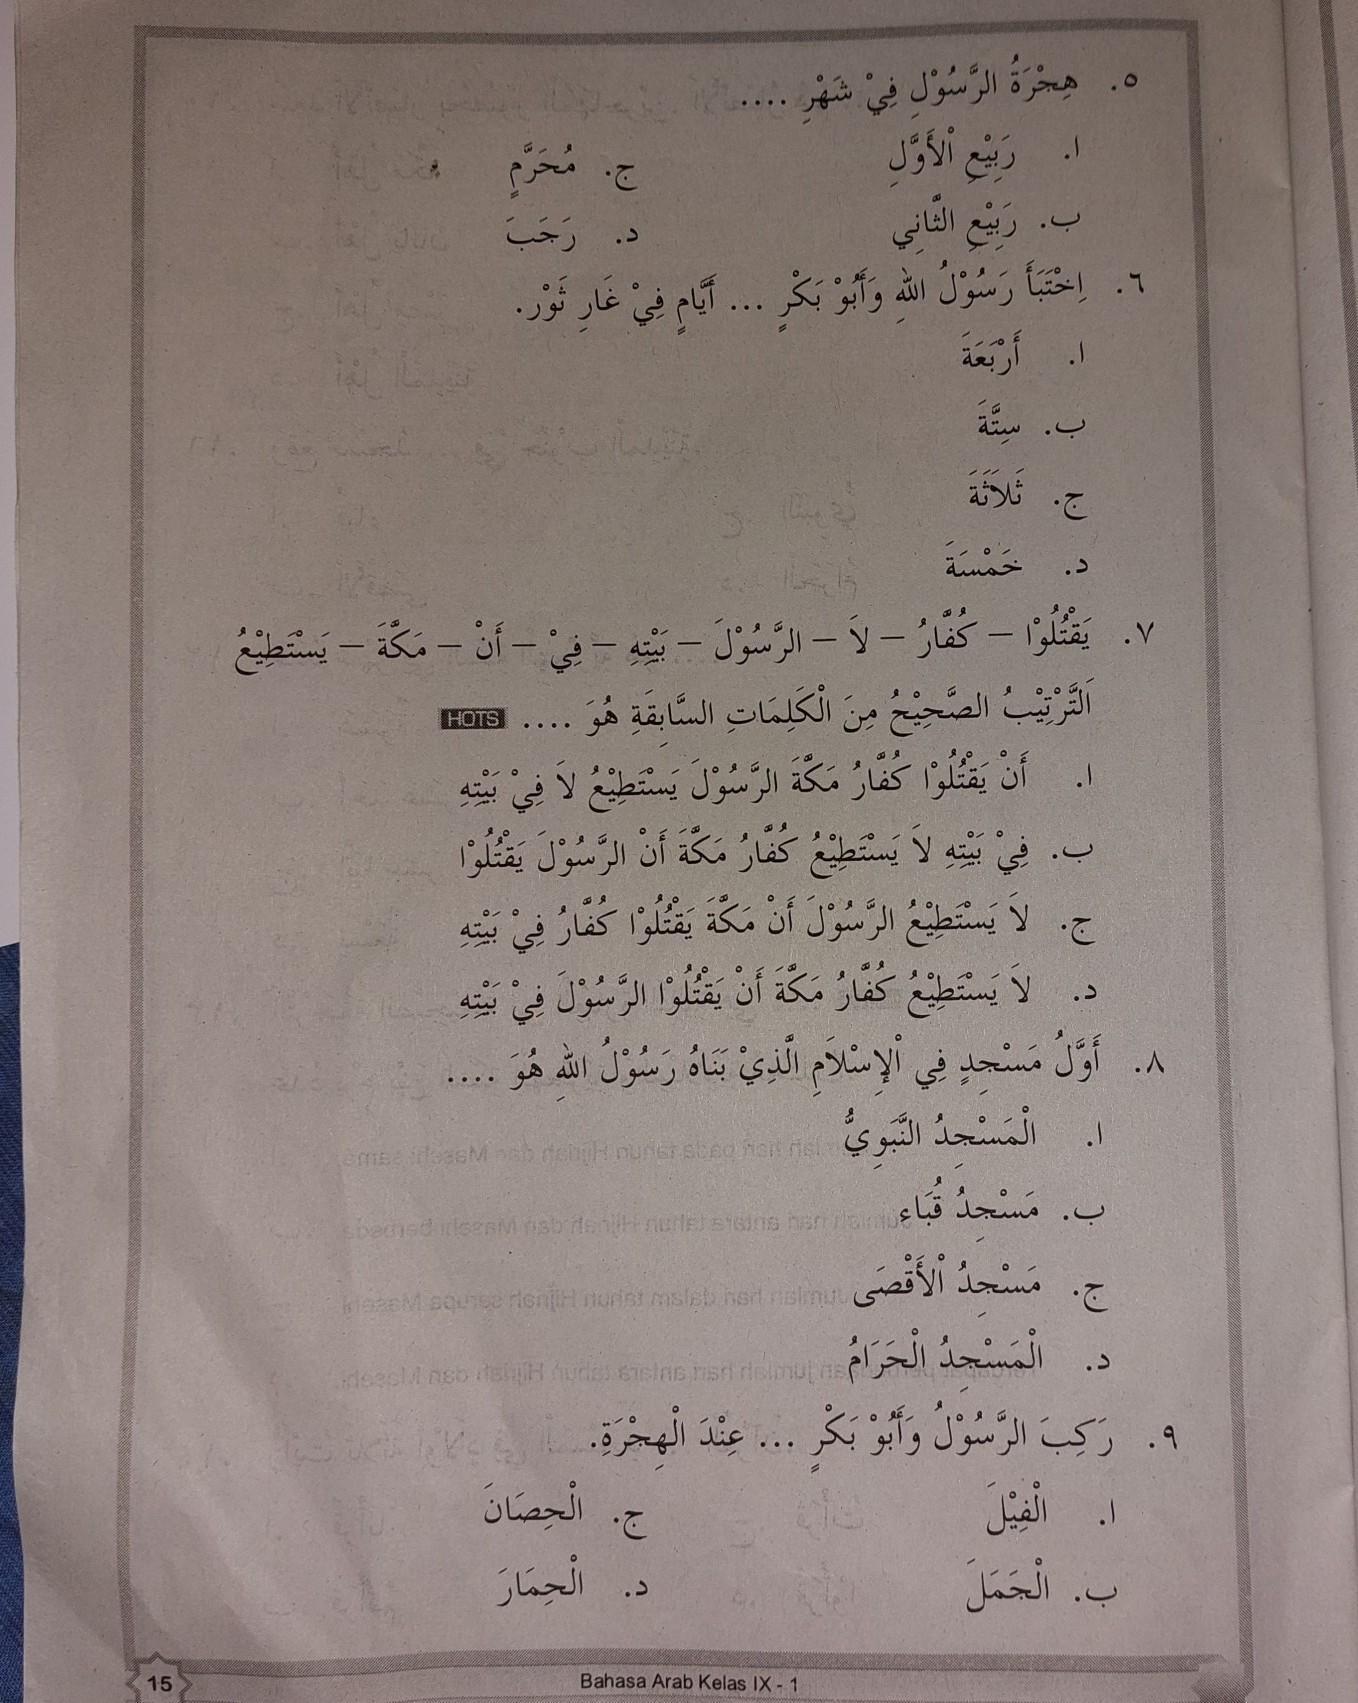 ٥. هِجْرَةُ الرَّسُوْلِ فِيْ شَهْرِ ....
ا. رَبِيْعِ الْأَوَّلِ ج. مُحَرَّمٍ
ب. رَبِيْعِ الثَّانِي د. رَجَبَ
٦. اِخْتَبَأَ رَسُوْلُ اللهِ وَأَبُوْ بَكْرٍ ... أَيَّامٍ فِيْ غَارِ ثَوْر.
ا. أَرْبَعَةَ
ب. سِتَّةَ
ج. ثَلَاثَةَ
د. خَمْسَةَ
٧. يَقْتُلُوْا – كُفَّارُ – لاَ – الرَّسُوْلَ – بَيْتِهِ – فِيْ – أَنْ – مَكَّةَ – يَسْتَطِيْعُ
اَلتَّرْتِيْبُ الصَّحِيْحُ مِنَ الْكَلِمَاتِ السَّابِقَةِ هُوَ .... HOTS
ا. أَنْ يَقْتُلُوْا كُفَّارُ مَكَّةَ الرَّسُوْلَ يَسْتَطِيْعُ لاَ فِيْ بَيْتِهِ
ب. فِيْ بَيْتِهِ لاَ يَسْتَطِيْعُ كُفَّارُ مَكَّةَ أَنْ الرَّسُوْلَ يَقْتُلُوْا
ج. لاَ يَسْتَطِيْعُ الرَّسُوْلَ أَنْ مَكَّةَ يَقْتُلُوْا كُفَّارُ فِيْ بَيْتِهِ
د. لاَ يَسْتَطِيْعُ كُفَّارُ مَكَّةَ أَنْ يَقْتُلُوْا الرَّسُوْلَ فِيْ بَيْتِهِ
٨. أَوَّلُ مَسْجِدٍ فِي الْإِسْلاَمِ الَّذِيْ بَنَاهُ رَسُوْلُ اللهِ هُوَ ....
ا. الْمَسْجِدُ النَّبَوِيُّ
ب. مَسْجِدُ قُبَاء
ج. مَسْجِدُ الْأَقْصَى
د. الْمَسْجِدُ الْحَرَامُ
٩. رَكِبَ الرَّسُوْلُ وَأَبُوْ بَكْرٍ ... عِنْدَ الْهِجْرَةِ.
ا. الْفِيْلَ ج. الْحِصَانَ
ب. الْجَمَلَ د. الْحِمَارَ
15 Bahasa Arab Kelas IX - 1